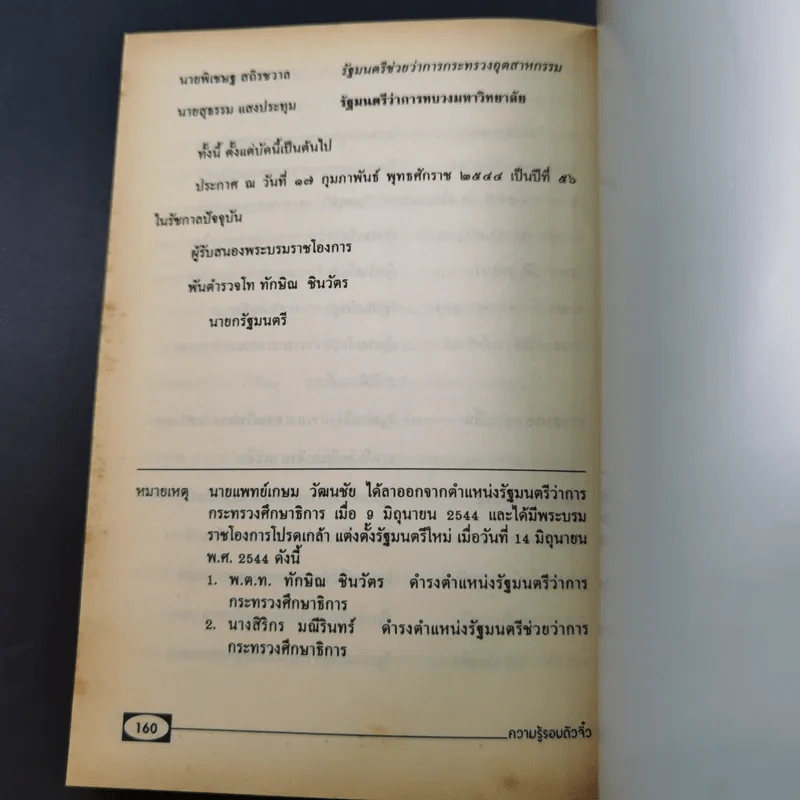 นายพิเชษฐ สถิรชวาล รัฐมนตรีช่วยว่าการกระทรวงอุตสาหกรรม
นายสุธรรม แสงประทุม รัฐมนตรีว่าการทบวงมหาวิทยาลัย
ทั้งนี้ ตั้งแต่บัดนี้เป็นต้นไป
ประกาศ ณ วันที่ ๑๗ กุมภาพันธ์ พุทธศักราช ๒๕๔๔ เป็นปีที่ ๕๖
ในรัชกาลปัจจุบัน
ผู้รับสนองพระบรมราชโองการ
พันตำรวจโท ทักษิณ ชินวัตร
นายกรัฐมนตรี
หมายเหตุ นายแพทย์เกษม วัฒนชัย ได้ลาออกจากตำแหน่งรัฐมนตรีว่าการ
กระทรวงศึกษาธิการ เมื่อ 9 มิถุนายน 2544 และได้มีพระบรม
ราชโองการโปรดเกล้า แต่งตั้งรัฐมนตรีใหม่ เมื่อวันที่ 14 มิถุนายน
พ.ศ. 2544 ดังนี้
1. พ.ต.ท. ทักษิณ ชินวัตร ดำรงตำแหน่งรัฐมนตรีว่าการ
กระทรวงศึกษาธิการ
2. นางสิริกร มณีรินทร์ ดำรงตำแหน่งรัฐมนตรีช่วยว่าการ
กระทรวงศึกษาธิการ
160 ความรู้รอบตัวจิ๋ว